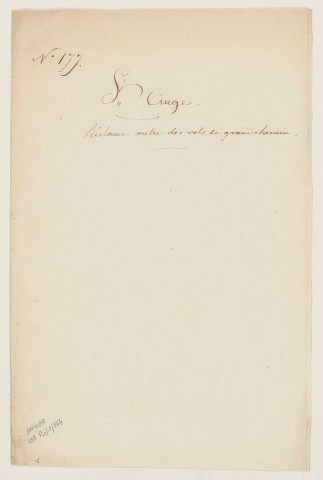 N.° 177.
St Ange.
Réclame contre des vols de grand chemin.